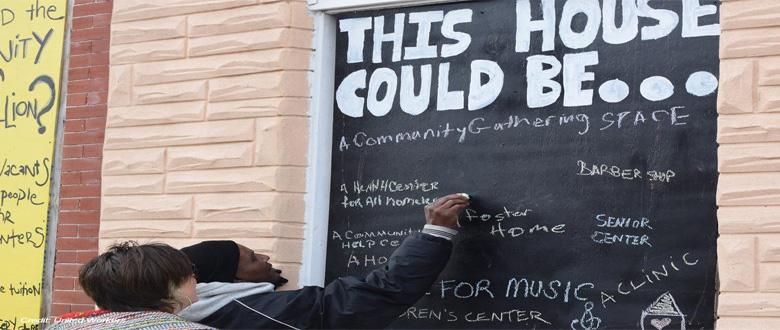 THIS HOUSE
COULD BE...
A Community Gathering SPACE
BARBER SHOP
A HEALTH CENTER
for All homeless
Foster
Home
SENIOR
CENTER
A COMMUNITY
HELP CE
A HO
A CLINIC
FOR MUSIC
&
REN'S CENTER
D the
NITY
LION?
VACANTS
people
OR
NTERS
TUITION
Credit: United Workers